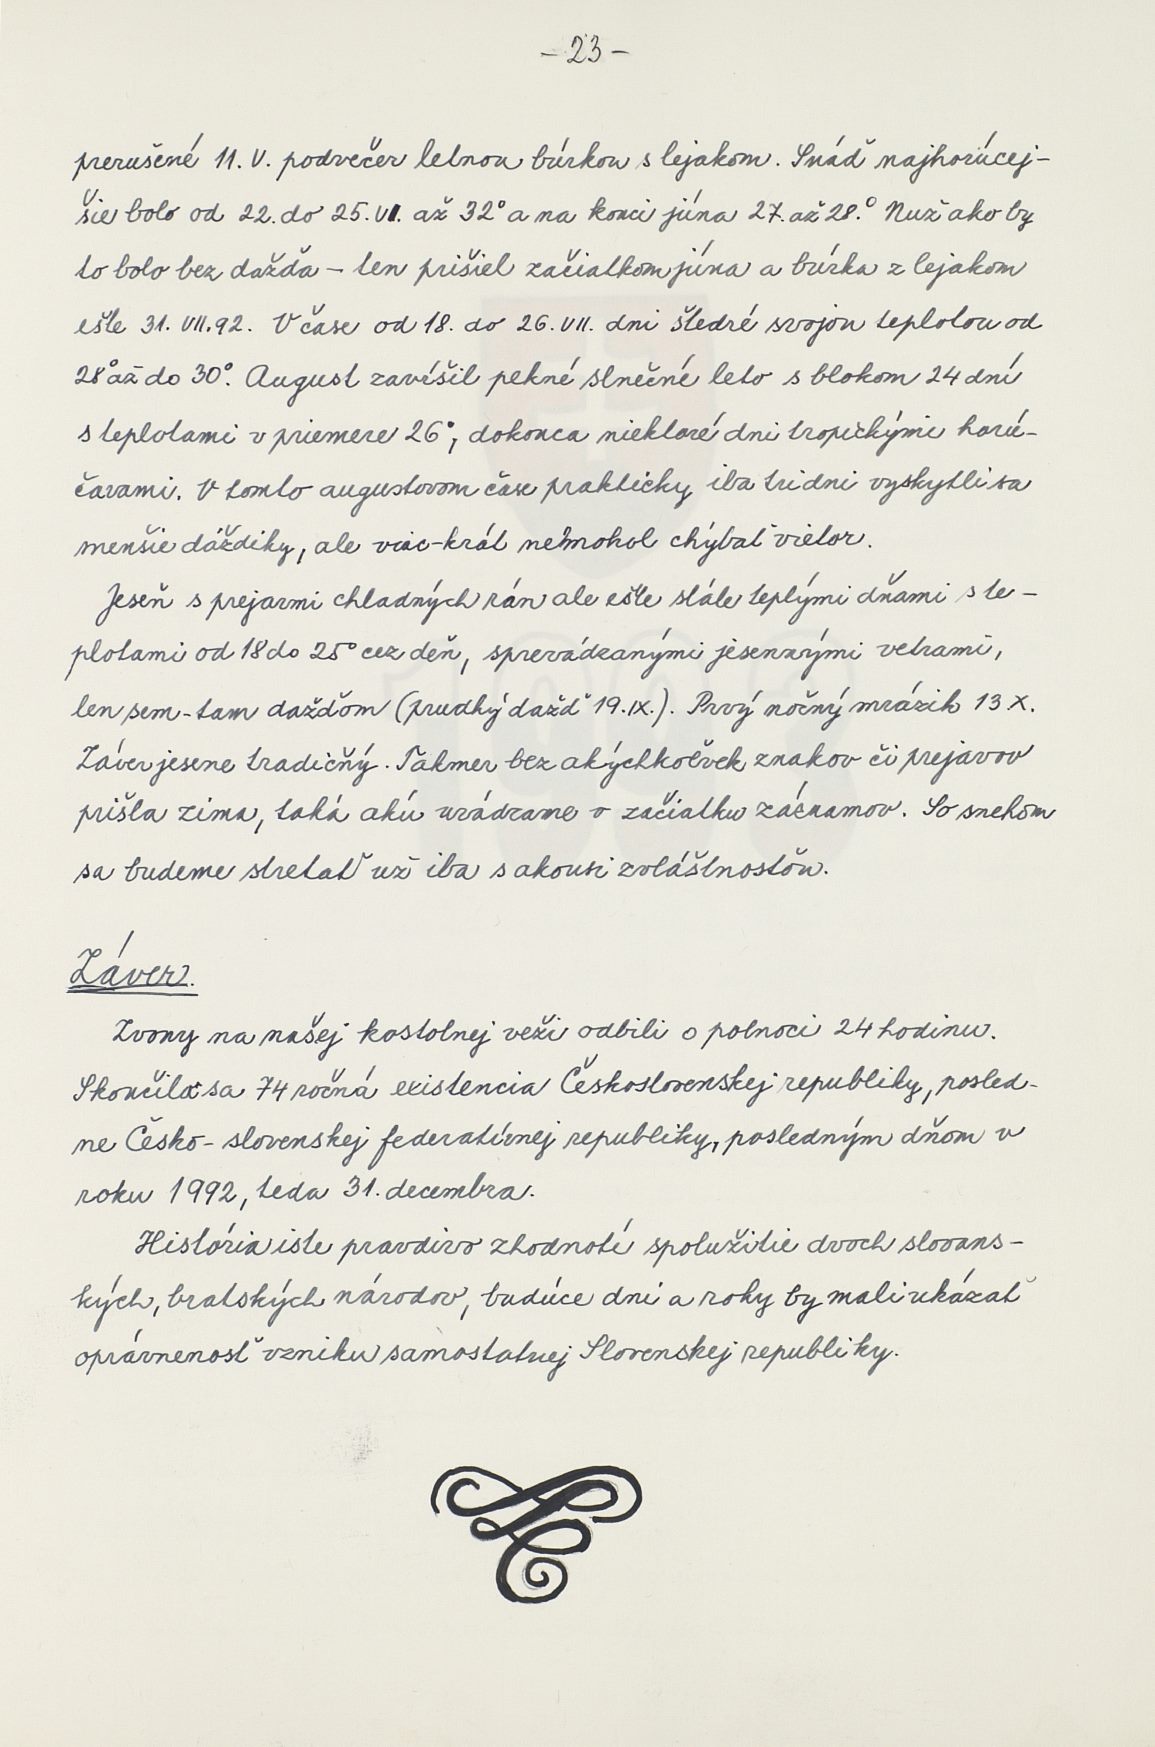 - 23 -
prerušené 11. V. podvečer letnou búrkou s lejakom. Snáď najhorúcej-
šie bolo od 22. do 25. VI. až 32° a na konci júna 27. až 28.° Nuž ako by
to bolo bez dažďa - ten prišiel začiatkom júna a búrka z lejakom
ešte 31. VII. 92. V čase od 18. do 26. VII. dni štedré svojou teplotou od
28° až do 30°. August zavŕšil pekné slnečné leto s blokom 24 dní
s teplotami v priemere 26°, dokonca niektoré dni tropickými horú-
čavami. V tomto augustovom čase prakticky iba tri dni vyskytli sa
menšie dáždiky, ale viac-krát nemohol chýbať vietor.
Jeseň s prejavmi chladných rán ale ešte stále teplými dňami s te-
plotami od 18 do 25° cez deň, sprevádzanými jesennými vetrami,
len sem-tam dažďom (prudký dážď 19. IX.). Prvý nočný mrázik 13 X.
Záver jesene tradičný. Takmer bez akýchkoľvek znakov či prejavov
prišla zima, taká akú uvádzame v začiatku záznamov. So snehom
sa budeme stretať už iba s akousi zvláštnosťou.
Záver.
Zvony na našej kostolnej veži odbili o polnoci 24 hodinu.
Skončila sa 74 ročná existencia Československej republiky, posled-
ne Česko-slovenskej federatívnej republiky, posledným dňom v
roku 1992, teda 31. decembra.
História iste pravdivo zhodnotí spolužitie dvoch slovans-
kých, bratských národov, budúce dni a roky by mali ukázať
oprávnenosť vzniku samostatnej Slovenskej republiky.